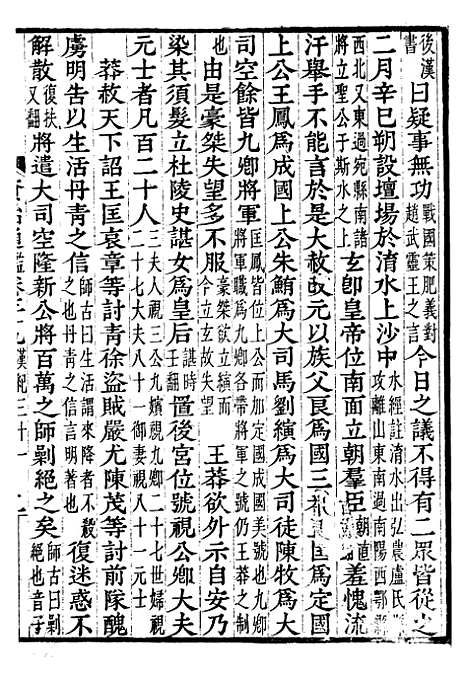 後漢書曰疑事無功戰國策肥義對趙武靈王之言今日之議不得有二衆皆從之
二月辛巳朔設壇場於淯水上沙中水經註淯水出弘農盧氏縣攻離山東南過南陽西鄂縣
西北又東過宛縣南諸將立聖公于斯水之上玄即皇帝位南面立朝羣臣朝直羞愧流
汗舉手不能言於是大赦改元以族父良爲國三老王匡爲定國
上公王鳳爲成國上公朱鮪爲大司馬劉縯爲大司徒陳牧爲大
司空餘皆九卿將軍匡鳳皆位上公而加定國成國美號餘以九卿將軍職爲九卿各而帶將軍之號仍王莽之制
也由是豪桀失望多不服豪桀欲立縯而今立玄故失望王莽欲外示自安乃
染其須髮立杜陵史諶女爲皇后諶時壬翻置後宮位號視公卿大夫
元士者凡百二十人三夫人視三公九嬪視九卿二十七世婦視二十七大夫八十一御妻視八十一元士
莽赦天下詔王匡哀章等討青徐盜賊嚴尤陳茂等討前隊醜
虜明告以生活丹青之信師古曰生活謂來降者不殺之也丹青之信言明著也復迷惑不
解散復扶又翻將遣大司空隆新公將百萬之師剿絕之矣師古曰剿絕也音子
資治通鑑卷三十九漢紀三十一 二